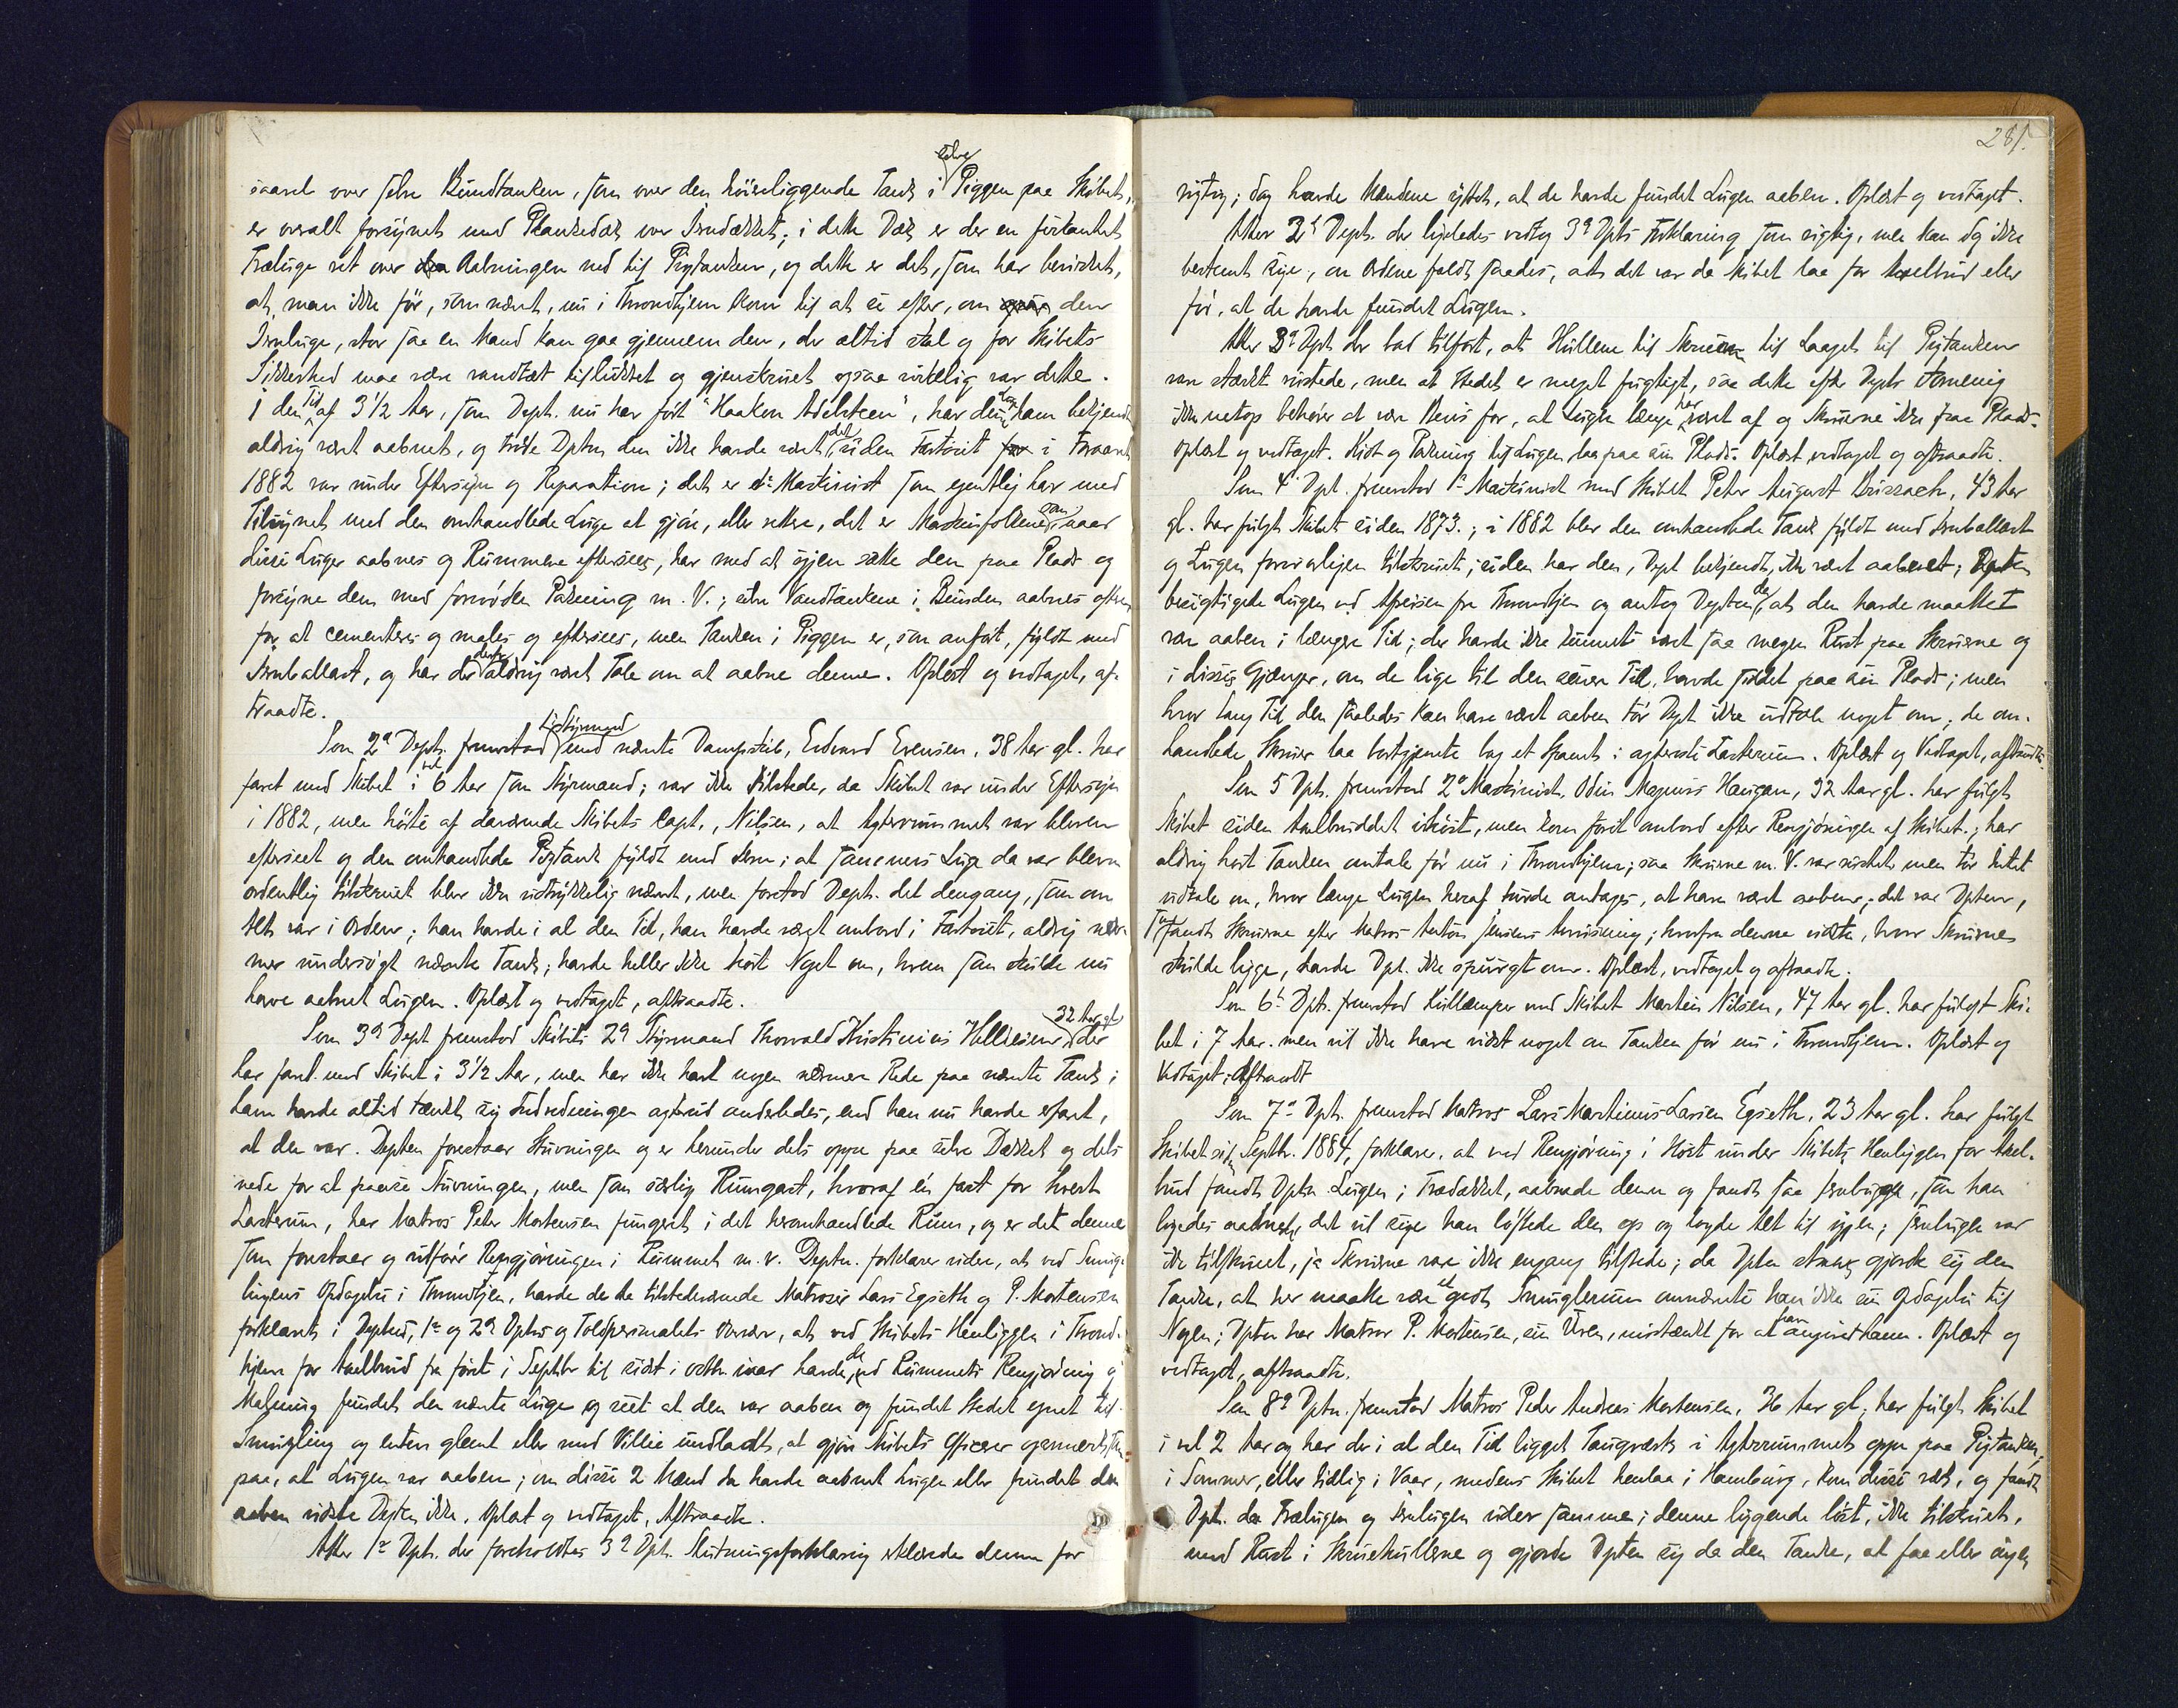 saavel over selve Bundtanken, som over den høiereliggende Tank i selve Piggen paa Skibet,
er overalt forsynet med Plankedæk over Jerndækket; i dette Dæk er der en firkantet
Træluge ret over Aabningen ned til Pigtanken, og dette er det, som har bevirket,
at man ikke før, som nævnt, nu i Throndhjem kom til at se efter, om den
Jernluge, stor saa en Mand kan gaa gjennem den, der altid skal og for Skibets
Sikkerhed maa være vandtæt tillukket og gjenskruet ogsaa virkelig var dette.
I den Tid af 3 1/2 Aar, som Dept. nu har ført "Haakon Adelsteen", har den ham bekjendt
aldrig været aabnet, og troede Depten den ikke havde været det siden Fartøiet i Foraaret
1882 var under Eftersyn og Reparation; det er 1ste Maskinist som egentlig har med
Tilsynet med den omhandlede Luge at gjøre, eller rettere, det er Maskinfolkene som, naar
disse Luger aabnes og Rummene eftersees, har med at igjen sætte dem paa Plads og
forsyne dem med fornøden Pakning m. V.; selve Vandtankene i Bunden aabnes oftere
for at cementeres og males og eftersees, men Tanken i Piggen er, som anført, fyldt med
Jernballast, og har der derfor aldrig været Tale om at aabne denne. Oplæst og vedtaget, af-
traadte.
Som 2d Dept. fremstod 1ste Styrmand med nævnte Dampskib, Edvard Evensen, 38 Aar gl. har
faret med Skibet i vel 6 Aar som Styrmand; var ikke tilstede, da Skibet var under Eftersyn
i 1882, men hørte af daværende Skibets Capt., Nilsen, at Agterrummet var bleven
efterseet og den omhandlede Pigtank fyldt med Jern; at sammens Luge da var bleven
ordentlig tilskruet blev ikke udtrykkelig nævnt, men forstod Dept. det dengang, som om
Alt var i Orden; han havde i al den Tid, han havde været ombord i Fartøiet, aldrig nær-
mer undersøgt nævnte Tank; havde heller ikke hørt Noget om, hvem som skulde nu
have aabnet Lugen. Oplæst og vedtaget, aftraadte.
Som 3d Dept fremstod Skibets 2d Styrmand Thorvald Kristinius Helliesen, 32 Aar gl der
har faret med Skibet i 3 1/2 Aar, men har ikke havt nogen nærmere Rede paa nævnte Tank;
ham havde altid tænkt sig Indredningen agterud anderledes, end han nu havde erfaret,
at den var. Depten forestaar Stuvningen og er herunder dels oppe paa selve Dækket og dels
nede for at paase Stuvningen, men som særlig Rumgast, hvoraf én fast for hvert
Lasterum, har Matros Peter Mortensen fungeret i det heromhandlede Rum, og er det denne
som forestaar og udfører Rengjøringen i Rummet m. v. Depten. forklarer videre, at ved Smug-
lingens Opdagelse i Throndhjem, havde de da tilstedeværende Matroser Lars Egseth og P. Mortensen
forklaret i Deptens, 1ste og 2d Deptes og Toldpersonalets Nærvær, at ved Skibets Henliggen i Thrond-
hjem for Axelbrud fra først i Septbr til sidst i Octbr. ivaar havde de ved Rummets Rengjøring og
Malning fundet den nævnte Luge og seet at den var aaben og fundet Stedet egnet til
Smugling og enten glemt eller med Villie undladt, at gjøre Skibets Officerer opmærksom
paa, at Lugen var aaben; om disse 2 Mænd da havde aabnet Lugen eller fundet den
aaben vidste Depten ikke. Oplæst og vedtaget, Aftraadte.
Atter 1ste Dept. der foreholdtes 3d Dept. Slutningsforklaring erklærede denne for
281.
rigtig; dog havde Mændene yttret, at de havde fundet Lugen aaben. Oplæst og vedtaget.
Atter 2d Dept. der ligeledes vedtog 3d Depts Forklaring som rigtig, men kan dog ikke
bestemt sige, om Ordene faldt saaledes, at det var da Skibet laa for Axelbrud eller
før, at de havde fundet Lugen.
Atter 3d Dept der bad tilført, at Hullene til Skruerne til Laaget til Pigtanken
var stærkt rustede, men at Stedet er meget fugtigt, saa dette efter Depts Formening
ikke netop behøver at være Bevis for, at Lugen længe har været af og Skruerne ikke paa Plads.
Oplæst og vedtaget. Kist og Pakning til Lugen laa paa sin Plads. Oplæst vedtaget og aftraadte.
Som 4' Dept. fremstod 1ste Maskinist med Skibet Peter August Brissach, 43 Aar
gl. har fulgt Skibet siden 1873.; i 1882 blev den omhandlede Tank fyldt med Jernballast
og Lugen forsvarligen tilskruet; siden har den, Dept bekjendt, ikke været aabnet; Depten
besigtigede Lugen ved Afreisen fra Throndhjem og antog Depten da, at den havde maattet
være aaben i længere Tid; der havde ikke kunnet været saa megen Rust paa Skruerne og
i disses Gjænger, om de lige til den senere Tid, havde siddet paa sin Plads; men
hvor lang Tid den saaledes kan have været aaben tør Dept ikke udtale noget om; de om-
handlede Skruer laa bortgjemte bag et Spant i agterste Lasterum. Oplæst og Vedtaget, aftraadte.
Som 5 Dept. fremstod 2d Maskinist, Odin Magnus Haugan, 32 Aar gl. har fulgt
Skibet siden Axelbruddet ihøst, men kom først ombord efter Rengjøringen af Skibet.; har
aldrig hørt Tanken omtale før nu i Throndhjem; saa Skruerne m. V. var rustet men tør Intet
udtale om, hvor længe Lugen heraf turde antages, at have været aaben; det var Depten,
som fandt Skruerne efter Matros Anton Jensens Anvisning; hvorfra denne vidste, hvor Skruerne
skulde ligge, havde Dept. ikke spurgt om. Oplæst, vedtaget og aftraadte.
Som 6te Dept. fremstod Kullemper med Skibet Martin Nilsen, 47 Aar gl. har fulgt Ski-
bet i 7 Aar. men vil ikke have vidst noget om Tanken før nu i Throndhjem. Oplæst og
Vedtaget; Aftraadt
Som 7de Dept. fremstod Matros Lars Martinus Larsen Egseth, 23 Aar gl. har fulgt
Skibet siden Septbr. 1884, forklarer, at ved Rengjøring i Høst under Skibets Henliggen for Axel-
brud fandt Depten Lugen i Trædækket, aabnede denne og fandt saa Jernlugen, som han
ligedes aabnede, det vil sige han løftede den op og lagde Alt til igjen; Jernlugen var
ikke tilskruet, ja Skruerne var ikke engang tilstede; da Depten strax gjorde sig den
Tanke, at her maatte være et godt Smuglerum omnævnte han ikke sin Opdagelse til
Nogen; Depten har Matros P. Mortensen, sin Uven, mistænkt for at have angivet ham. Oplæst og
vedtaget, aftraadte.
Som 8d Depten. fremstod Matros Peder Andreas Mortensen, 36 Aar gl; har fulgt Skibet
i vel 2 Aar og har der i al den Tid ligget Taugværk i Agterrummet oppe paa Pigtanken,
i Sommer, eller tidlig i Vaar, medens Skibet henlaa i Hamburg, kom disse væk, og fandt
Dept. da Trælugen og Jernlugen under samme; denne liggende løst, ikke tilskruet,
med Rust i Skruehullerne og gjorde Depten sig da den Tanke, at faa eller ingen